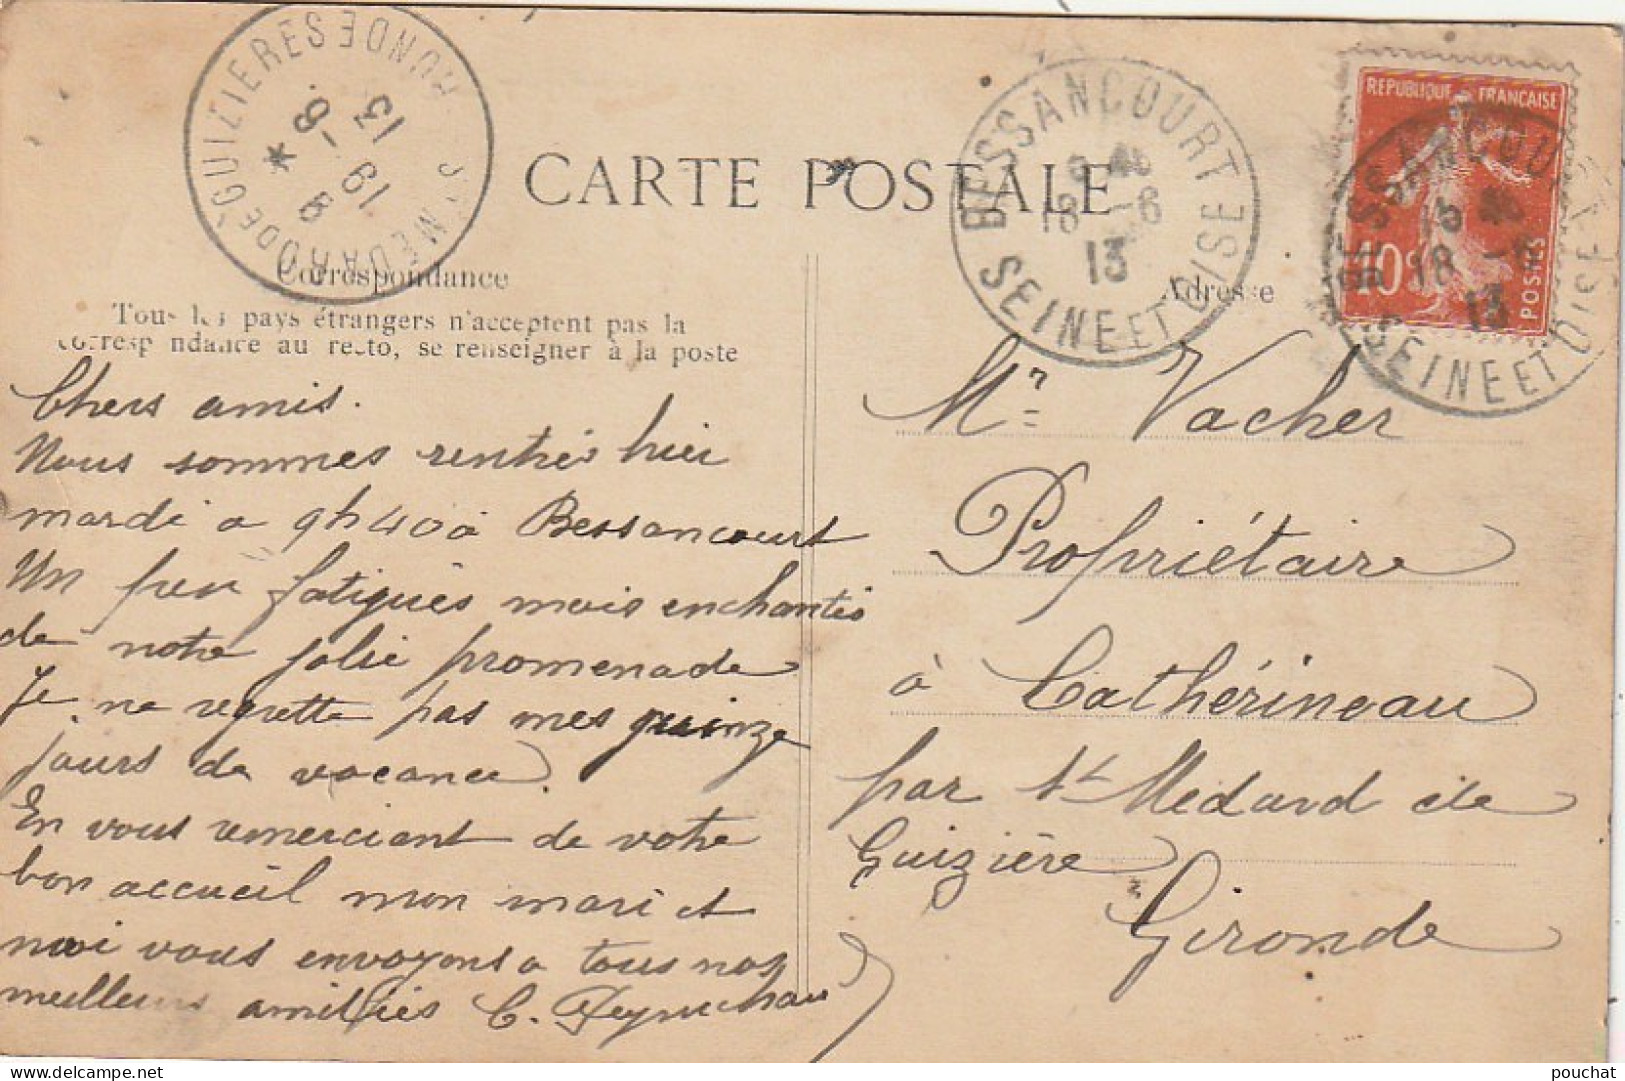 CARTE POSTALE
Correspondance
Tous les pays étrangers n'acceptent pas la
correspondance au recto, se renseigner à la poste
Adresse
Chers amis.
Nous sommes rentrés hier
mardi a 9h40 à Bessancourt
Un peu fatigués mais enchantés
de notre jolie promenade
Je ne regrette pas mes quinze
jours de vacance.
En vous remerciant de votre
bon accueil mon mari et
moi vous envoyons a tous nos
meilleurs amitiées C.
Mr Vacher
Propriétaire
à Cathérineau
par St Medard de
Guizière
Gironde
BESSANCOURT
18 -6
13
SEINE ET OISE
REPUBLIQUE FRANÇAISE
10c
POSTES
BESSANCOURT
15
18 -6
13
SEINE ET OISE
ST MEDARD DE GUIZIERES
GIRONDE
19 -6
13
pouchat